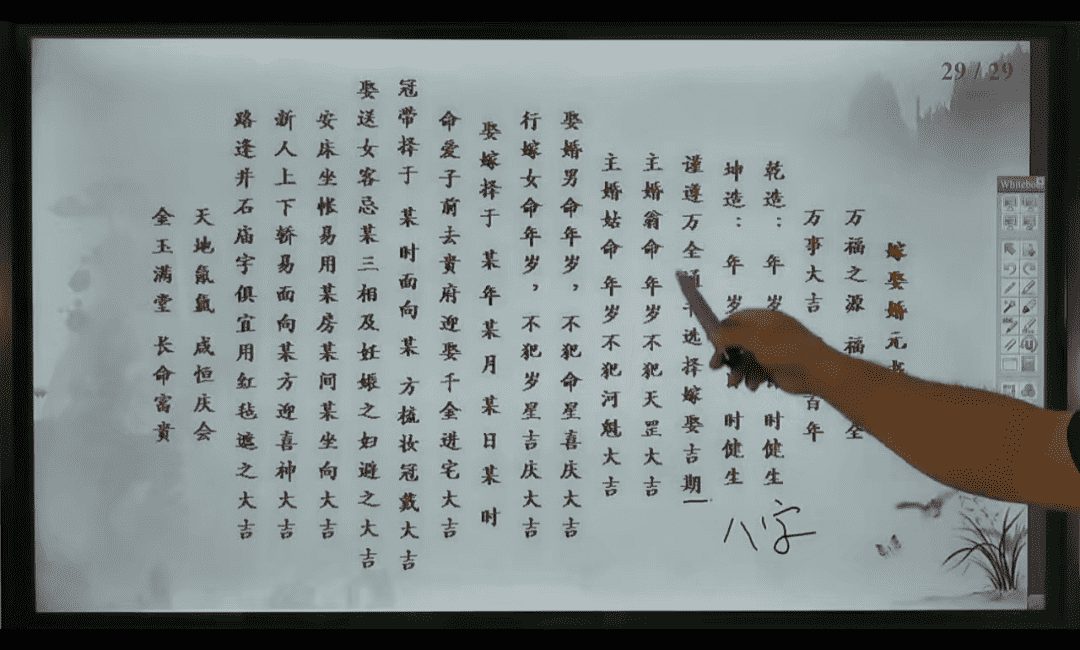 29 / 29
Whiteboard
嫁娶婚元
万福之源 福 全
万事大吉 百年
乾造：年 岁 时健生
坤造：年 岁 时健生
谨遵万全 选择嫁娶吉期
主婚翁命 年岁不犯天罡大吉
主婚姑命 年岁不犯河魁大吉
娶婚男命年岁，不犯命星喜庆大吉
行嫁女命年岁，不犯岁星吉庆大吉
娶嫁择于 某年某月某日某 时
命爱子前去贵府迎娶千金进宅大吉
冠带择于 某时面向 某 方梳妆冠戴大吉
娶送女客忌某三相及妊娠之妇避之大吉
安床坐帐易用某房某间某坐向大吉
新人上下轿易面向某方迎喜神大吉
路逢井石庙宇俱宜用红毡遮之大吉
天地氤氲 咸恒庆会
金玉满堂 长命富贵
八字